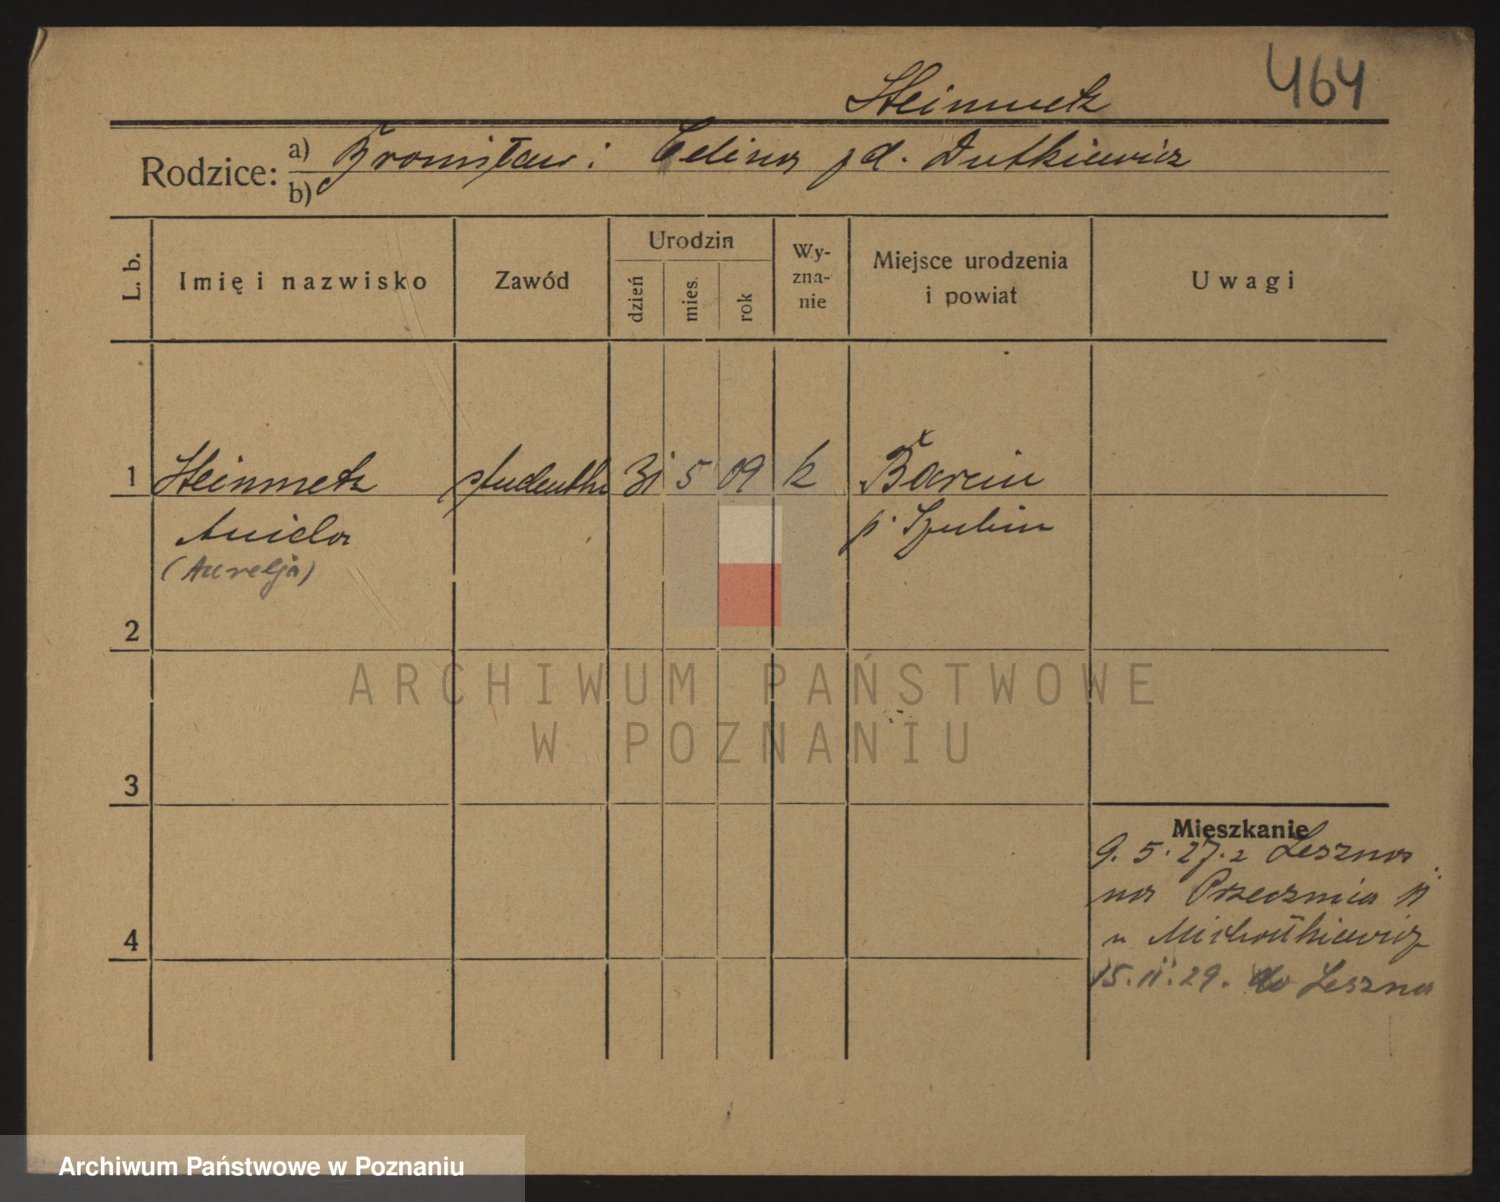 464
Steinmetz
Rodzice:
a) Bronisław i Celina zd. Dutkiewicz
b)
L. b.
Imię i nazwisko
Zawód
Urodzin
dzień
mies.
rok
Wy-
zna-
nie
Miejsce urodzenia
i powiat
Uwagi
1 Steinmetz studentka 31 5 09 k Barcin
Aniela p. Szubin
(Aurelja)
2
ARCHIWUM PAŃSTWOWE
W POZNANIU
3
Mieszkanie
9. 5. 27. z Leszna
na Przecznica
u
4
15. 11. 29. do Leszna
Archiwum Państwowe w Poznaniu